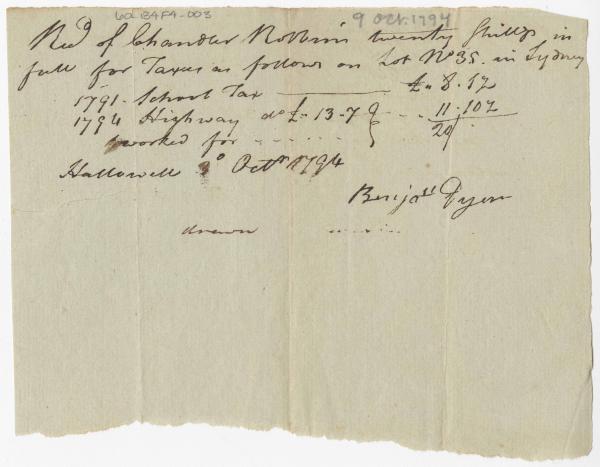 60.B4F4-003
9 Oct. 1794
Recd of Chandler Robbins twenty Shillgs in
full for Taxes as follows on Lot No 35. in Sydney
1791. School Tax £ " 8. 1½
1794 Highway do £ " 13 - 7 11. 10½
worked for 20
Hallowell 9o Octr 1794
Benjan Dyer
drawn